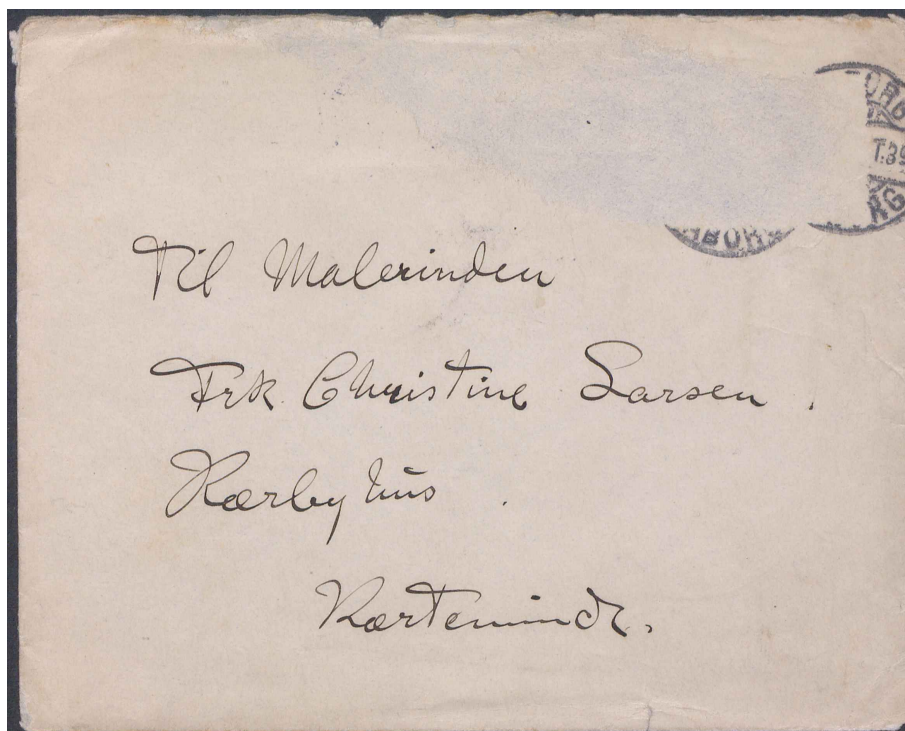 Til Malerinden
Frk. Christine Larsen.
Kærbyhus.
Kærteminde.